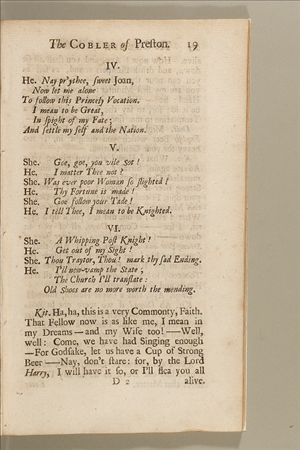 The COBLER of Preston. 19
IV.
He. Nay pr'ythee, sweet Joan,
Now let me alone
To follow this Princely Vocation.
I mean to be Great,
In spight of my Fate;
And settle my self and the Nation.
V.
She. Goe, got, you vile Sot!
He. I matter Thee not?
She. Was ever poor Woman so slighted!
He. Thy Fortune is made!
She. Goe follow your Tade!
He. I tell Thee, I mean to be Knighted.
VI.
She. A Whipping Post Knight?
He. Get out of my Sight?
She. Thou Traytor, Thou! mark thy sad Ending.
He. I'll new-vamp the State;
The Church I'll translate:
Old Shoes are no more worth the mending.
Kit. Ha, ha, this is a very Commonty, Faith.
That Fellow now is as like me, I mean in
my Dreams — and my Wife too! — Well,
well: Come, we have had Singing enough
— For Godsake, let us have a Cup of Strong
Beer — Nay, don't stare: for, by the Lord
Harry, I will have it so, or I'll flea you all
D 2 alive.